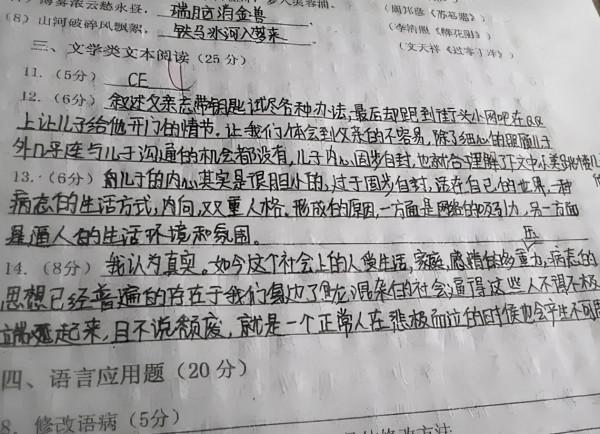 薄雾浓云愁永昼，瑞脑消金兽
(周邦彦《苏幕遮》)
(8) 山河破碎风飘絮，铁马冰河入梦来
(李清照《醉花阴》)
(文天祥《过零丁洋》)
三、文学类文本阅读 (25分)
11. (5分) CE
12. (6分) 叙述父亲忘带钥匙试尽各种办法，最后却跑到街头小网吧在QQ
上让儿子给他开门的情节。让我们体会到父亲的不容易，除了细心的照顾儿子
外几乎连与儿子沟通的机会都没有，儿子内心固步自封，也就合了理解了下文中小美
13. (6分) 儿子的内心其实是很胆小的，过于固步自封，活在自己的世界，一种
病态的生活方式，内向，双重人格。形成的原因，一方面是网络的吸引力，另一方面
是逼人的生活环境和氛围。
14. (8分) 我认为真实。如今这个社会上的人受生活，家庭，感情的多重压力，病态的
思想已经普遍的存在于我们身边了，混杂的社会逼得这些人不得不极
端起来，且不说颓废，就是一个正常人在悲极而泣的时候也会产生不可
四、语言应用题 (20分)
8. 修改语病 (5分)